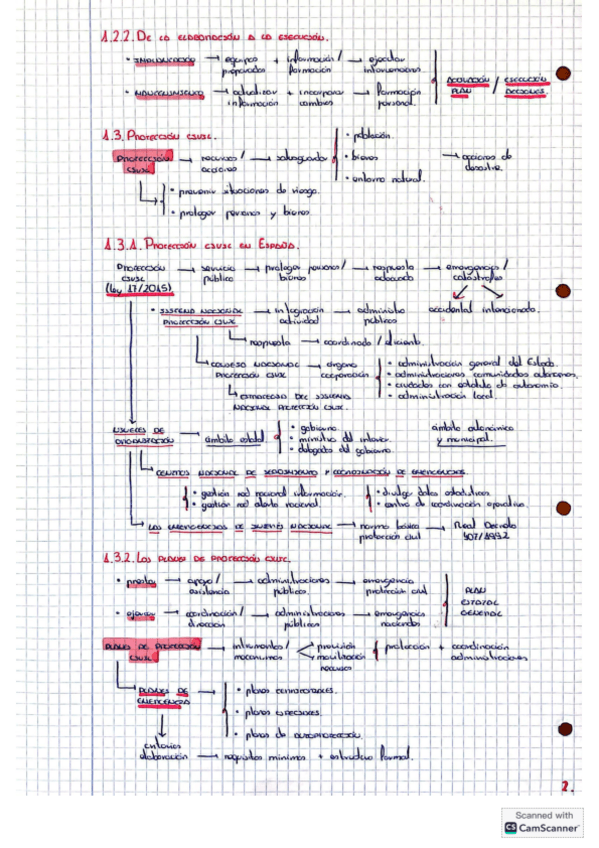 1.2.2. De la elaboración a la ejecución.
• Implantación → equipos preparados + información / formación → ejecutar intervenciones
• Mantenimiento → actualizar información + incorporar cambios → formación personal.
activación plan / ejecución decisiones
1.3. Protección civil.
Protección civil → recursos / acciones → salvaguarda
• población.
• bienes
• entorno natural.
→ opciones de desastre.
• prevenir situaciones de riesgo.
• proteger personas y bienes.
1.3.1. Protección civil en España.
Protección civil (ley 17/2015) → servicio público → proteger personas / bienes → respuesta adecuada → emergencias / catástrofes
accidental intencionado.
• Sistema nacional protección civil → integración actividad → administra. públicas
→ respuesta → coordinada / eficiente.
→ Consejo nacional protección civil → órgano cooperación
• administración general del Estado.
• administraciones comunidades autónomas.
• ciudades con estatuto de autonomía.
• administración local.
→ estrategia del sistema nacional protección civil.
Niveles de organización → ámbito estatal
• gobierno
• ministro del interior.
• delegados del gobierno
ámbito autonómico y municipal.
→ Centro nacional de seguimiento y coordinación de emergencias.
• gestión red nacional información.
• gestión red alerta nacional.
• divulgar datos estadísticos
• centro de coordinación operativa.
→ Las emergencias de interés nacional → norma básica protección civil → Real Decreto 407/1992
1.3.2. Los planes de protección civil.
• prestar → apoyo / asistencia → administraciones públicas. → emergencia protección civil
• ejercer → coordinación / dirección → administraciones públicas → emergencias nacionales
plan estatal general
Planes de protección civil → instrumentos / mecanismos
previsión
movilización recursos
protección + coordinación administraciones
→ Planes de emergencia →
• planes territoriales.
• planes especiales.
• planes de autoprotección.
criterios elaboración → requisitos mínimos + estructura formal.
2.
Scanned with
CS CamScanner